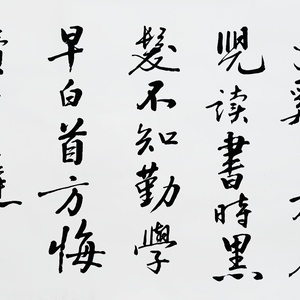 兒读書時黑
髮不知勤學
早白首方悔